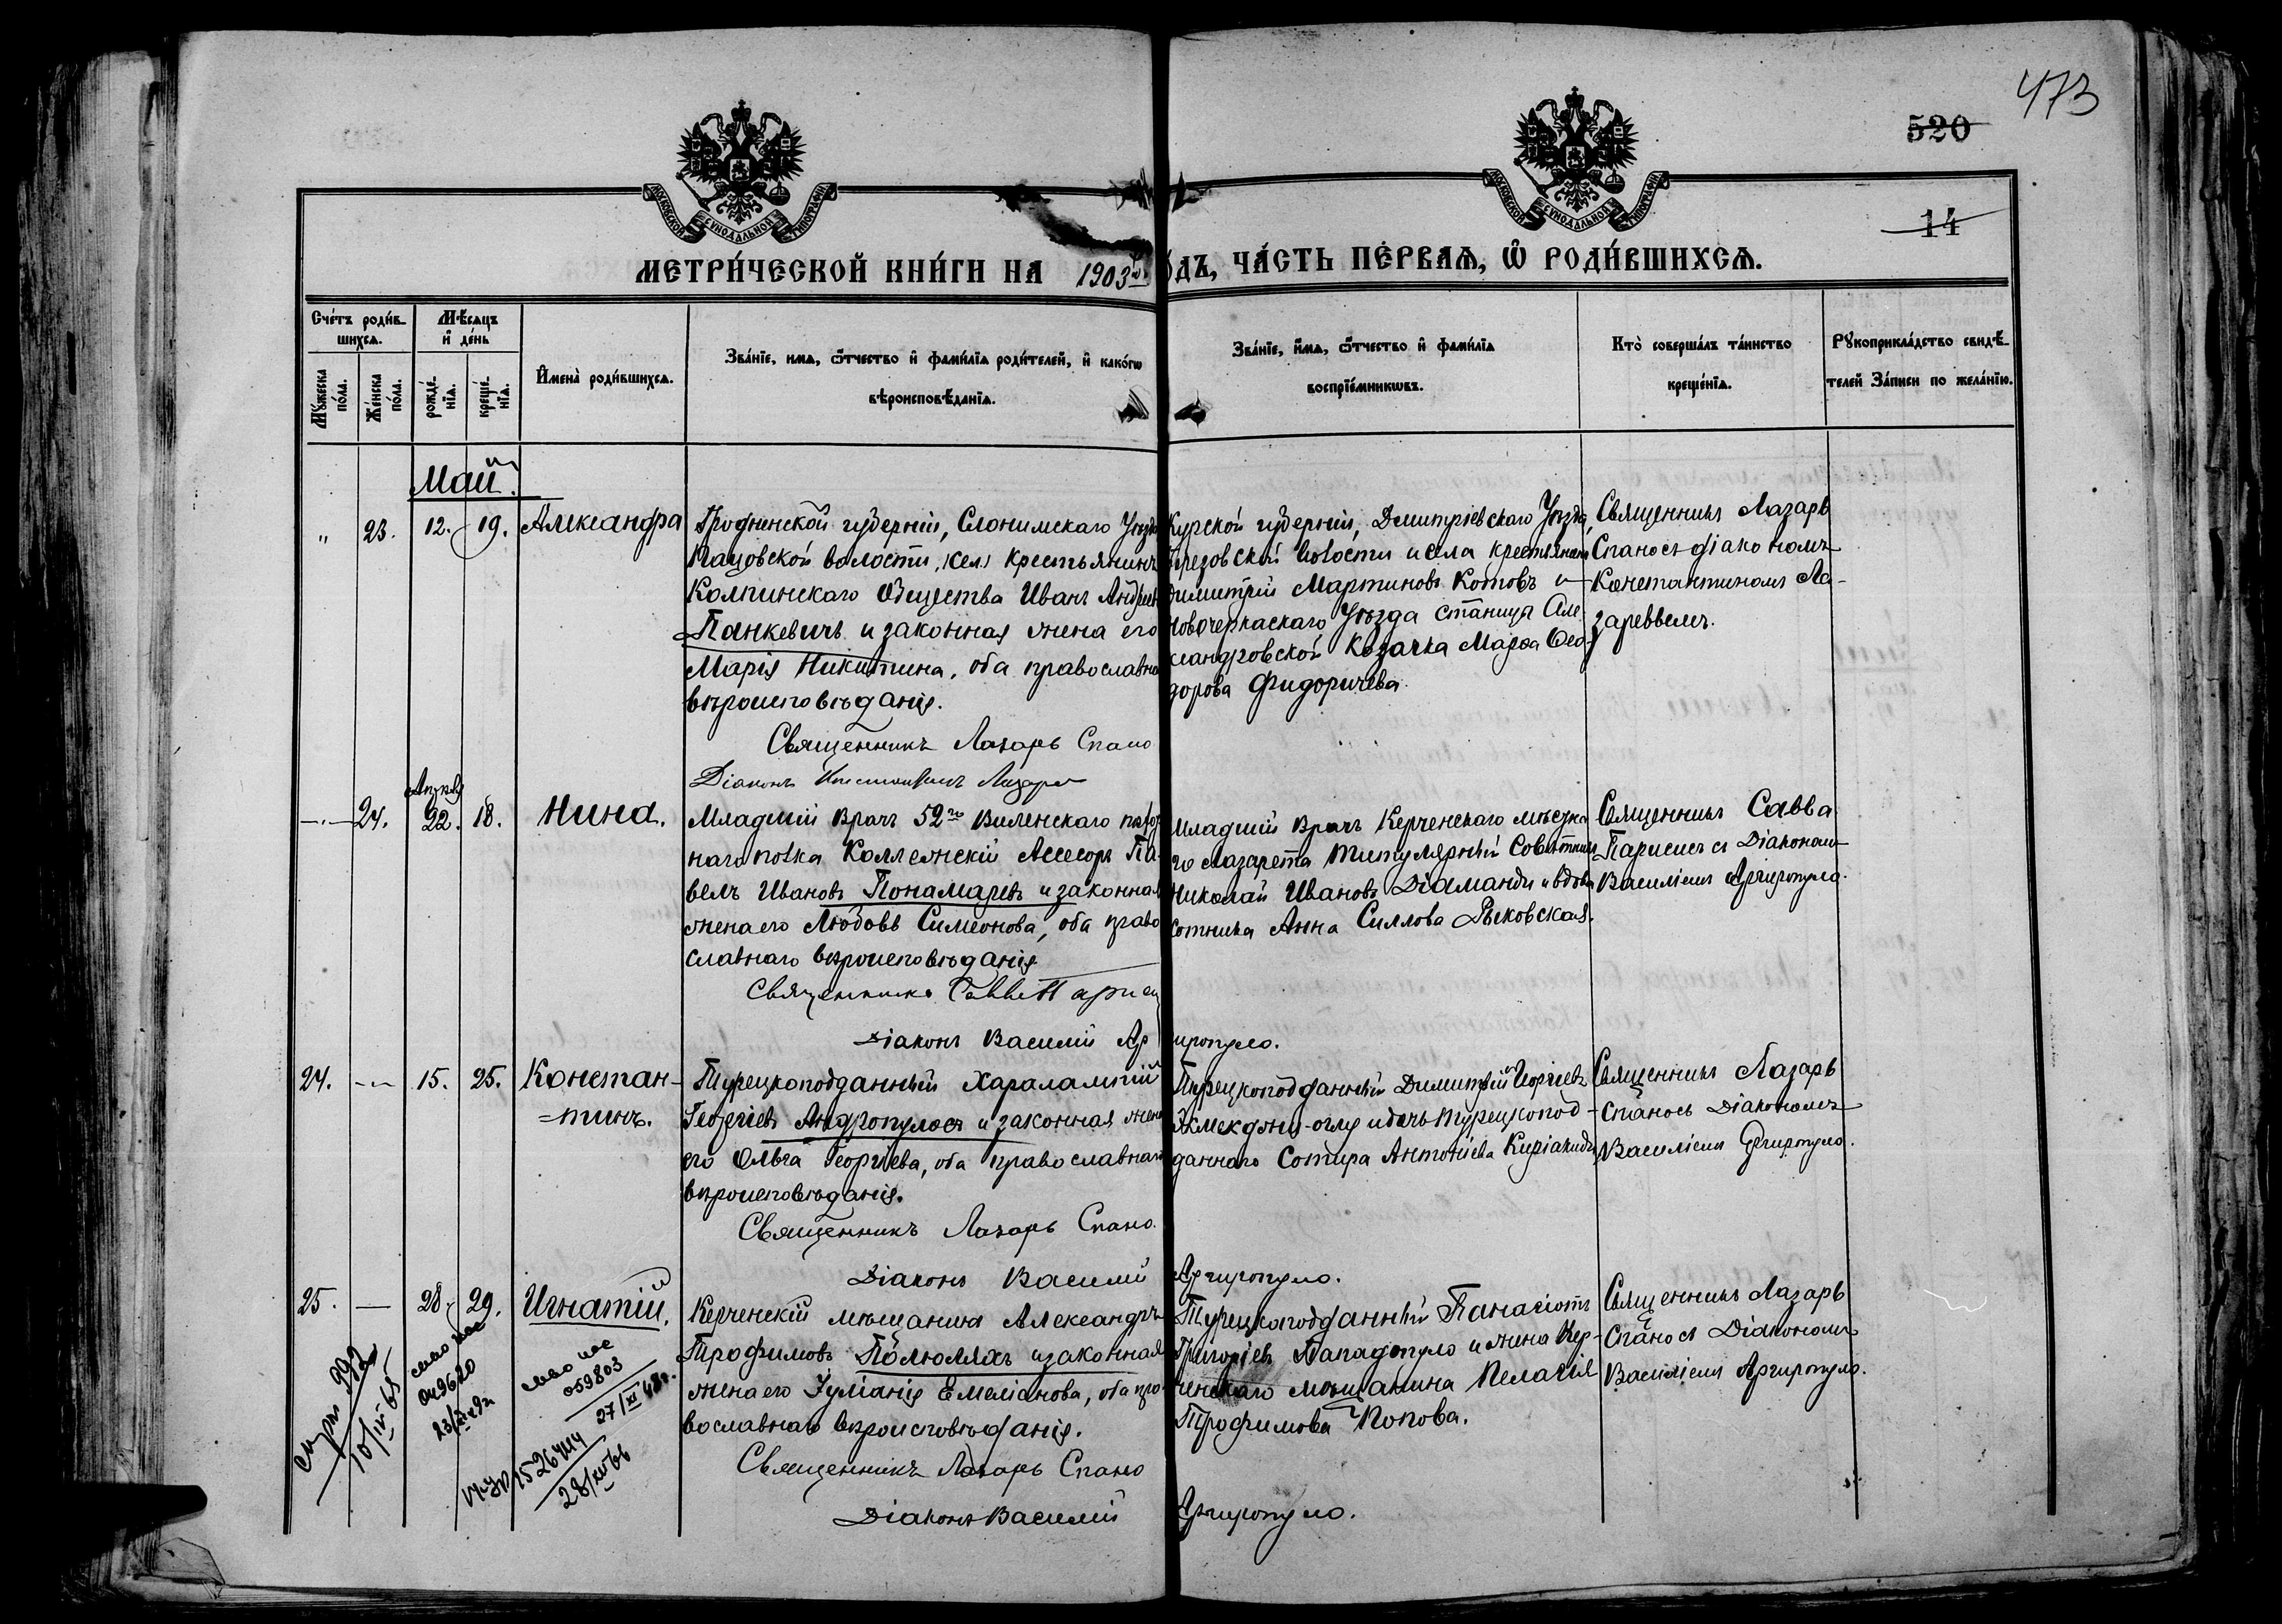 473
520
14
МОСКОВСКОЙ СУНОДАЛЬНОЙ ТИПОГРАФІИ
МОСКОВСКОЙ СУНОДАЛЬНОЙ ТИПОГРАФІИ
МЕТРИ́ЧЕСКОЙ КНИ́ГИ НА 1903й го́ДЪ, ЧА́СТЬ ПЕ́РВАѦ, Ѡ҆ РОДИ́ВШИХСѦ.
Сче́тъ роди́в-
шихсѧ.
Мѣ́сѧцъ
и҆ де́нь
Мꙋ́жеска
по́ла.
Же́нска
по́ла.
рожде́-
нїѧ.
креще́-
нїѧ.
И҆мена̀ роди́вшихсѧ.
Зва́нїе, имѧ, ѻ҆́тчество и҆ фами́лїѧ роди́телей, и҆ како́гѡ
вѣроисповѣ́данїѧ.
Зва́нїе, и҆́мѧ, ѻ҆́тчество и҆ фами́лїѧ
воспрїе́мникѡвъ.
Кто̀ соверша́лъ та́инство
креще́нїѧ.
Рꙋкоприкла́дство свидѣ́-
телей За́писи по жела́нїю.
Май.
„ 23. 12. 19. Александра
Гродненской губерніи, Слонимскаго Уѣзда
волости, сел. крестьянинъ
Колпинскаго Общества Иванъ Андреевъ
Панкевичъ и законная жена его
Марія Никитина, оба православнаго
вѣроисповѣданія.
Священникъ Лазарь Спано
Діаконъ Константинъ Лазаре
Курской губерніи, Дмитріевскаго Уѣзда,
волости и села крестьянинъ
Димитрій Мартиновъ Котовъ и
Новочеркаскаго Уѣзда станица Але-
ксандровской Козачка Марѳа Ѳео-
дорова Фидоричева.
Священникъ Лазарь
Спано съ діакономъ
Константиномъ Ла-
заревымъ.
24. Апрѣля 22. 18. Нина.
Младшій Врачъ 52го Виленскаго пѣхот
наго полка Коллежскій Асесоръ Па-
велъ Ивановъ Понамаревъ и законная
жена его Любовь Симеонова, оба право
славнаго вѣроисповѣданія
Священникъ Савва Парисис
Діаконъ Василій Аргиропуло.
Младшій Врачъ Керченскаго мѣстна
го Лазарета Титулярный Совѣтникъ
Николай Ивановъ Діаманди и вдова
Сотника Анна Силлова Рыковская.
Священникъ Савва
Парисисъ съ Діакономъ
Василіемъ Аргиропуло.
24. 15. 25. Констан-
=тинъ.
Турецкоподданный Харалампій
Георгіевъ Андропулосъ и законная жена
его Ольга Георгіева, оба православнаго
вѣроисповѣданія.
Священникъ Лазарь Спано.
Діаконъ Василій Аргиропуло.
Турецкоподданный Димитрій Георгіевъ
Экмекджи-оглу и дочь турецкопод-
даннаго Сотира Антоніева Киріакиди
Священникъ Лазарь
Спано съ Діакономъ
Василіемъ Аргиропуло.
25. — 28. 29. Игнатій.
Керченскій мѣщанинъ Александръ
Трофимовъ Полюляхъ и законная
жена его Іуліанія Емеліанова, оба пра-
вославнаго вѣроисповѣданія.
Священникъ Лазарь Спано
Діаконъ Василій Аргиропуло.
Турецкоподданный Панагіотъ
Григоріевъ Пападопуло и жена Кер-
ченскаго мѣщанина Пелагія
Трофимова Попова.
Священникъ Лазарь
Спано съ Діакономъ
Василіемъ Аргиропуло.
992
10/IV 65
049620
059803
27/XI 48г.